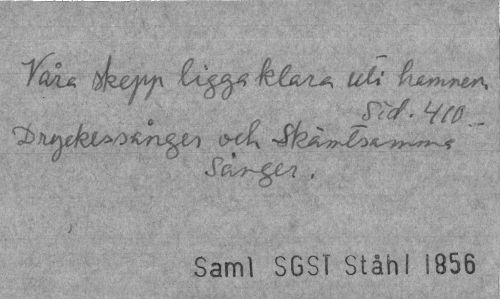 Våra skepp ligga klara uti hamnen
Sid. 410 –
Dryckessånger och Skämtsamma
Sånger.
Saml SGST Ståhl 1856